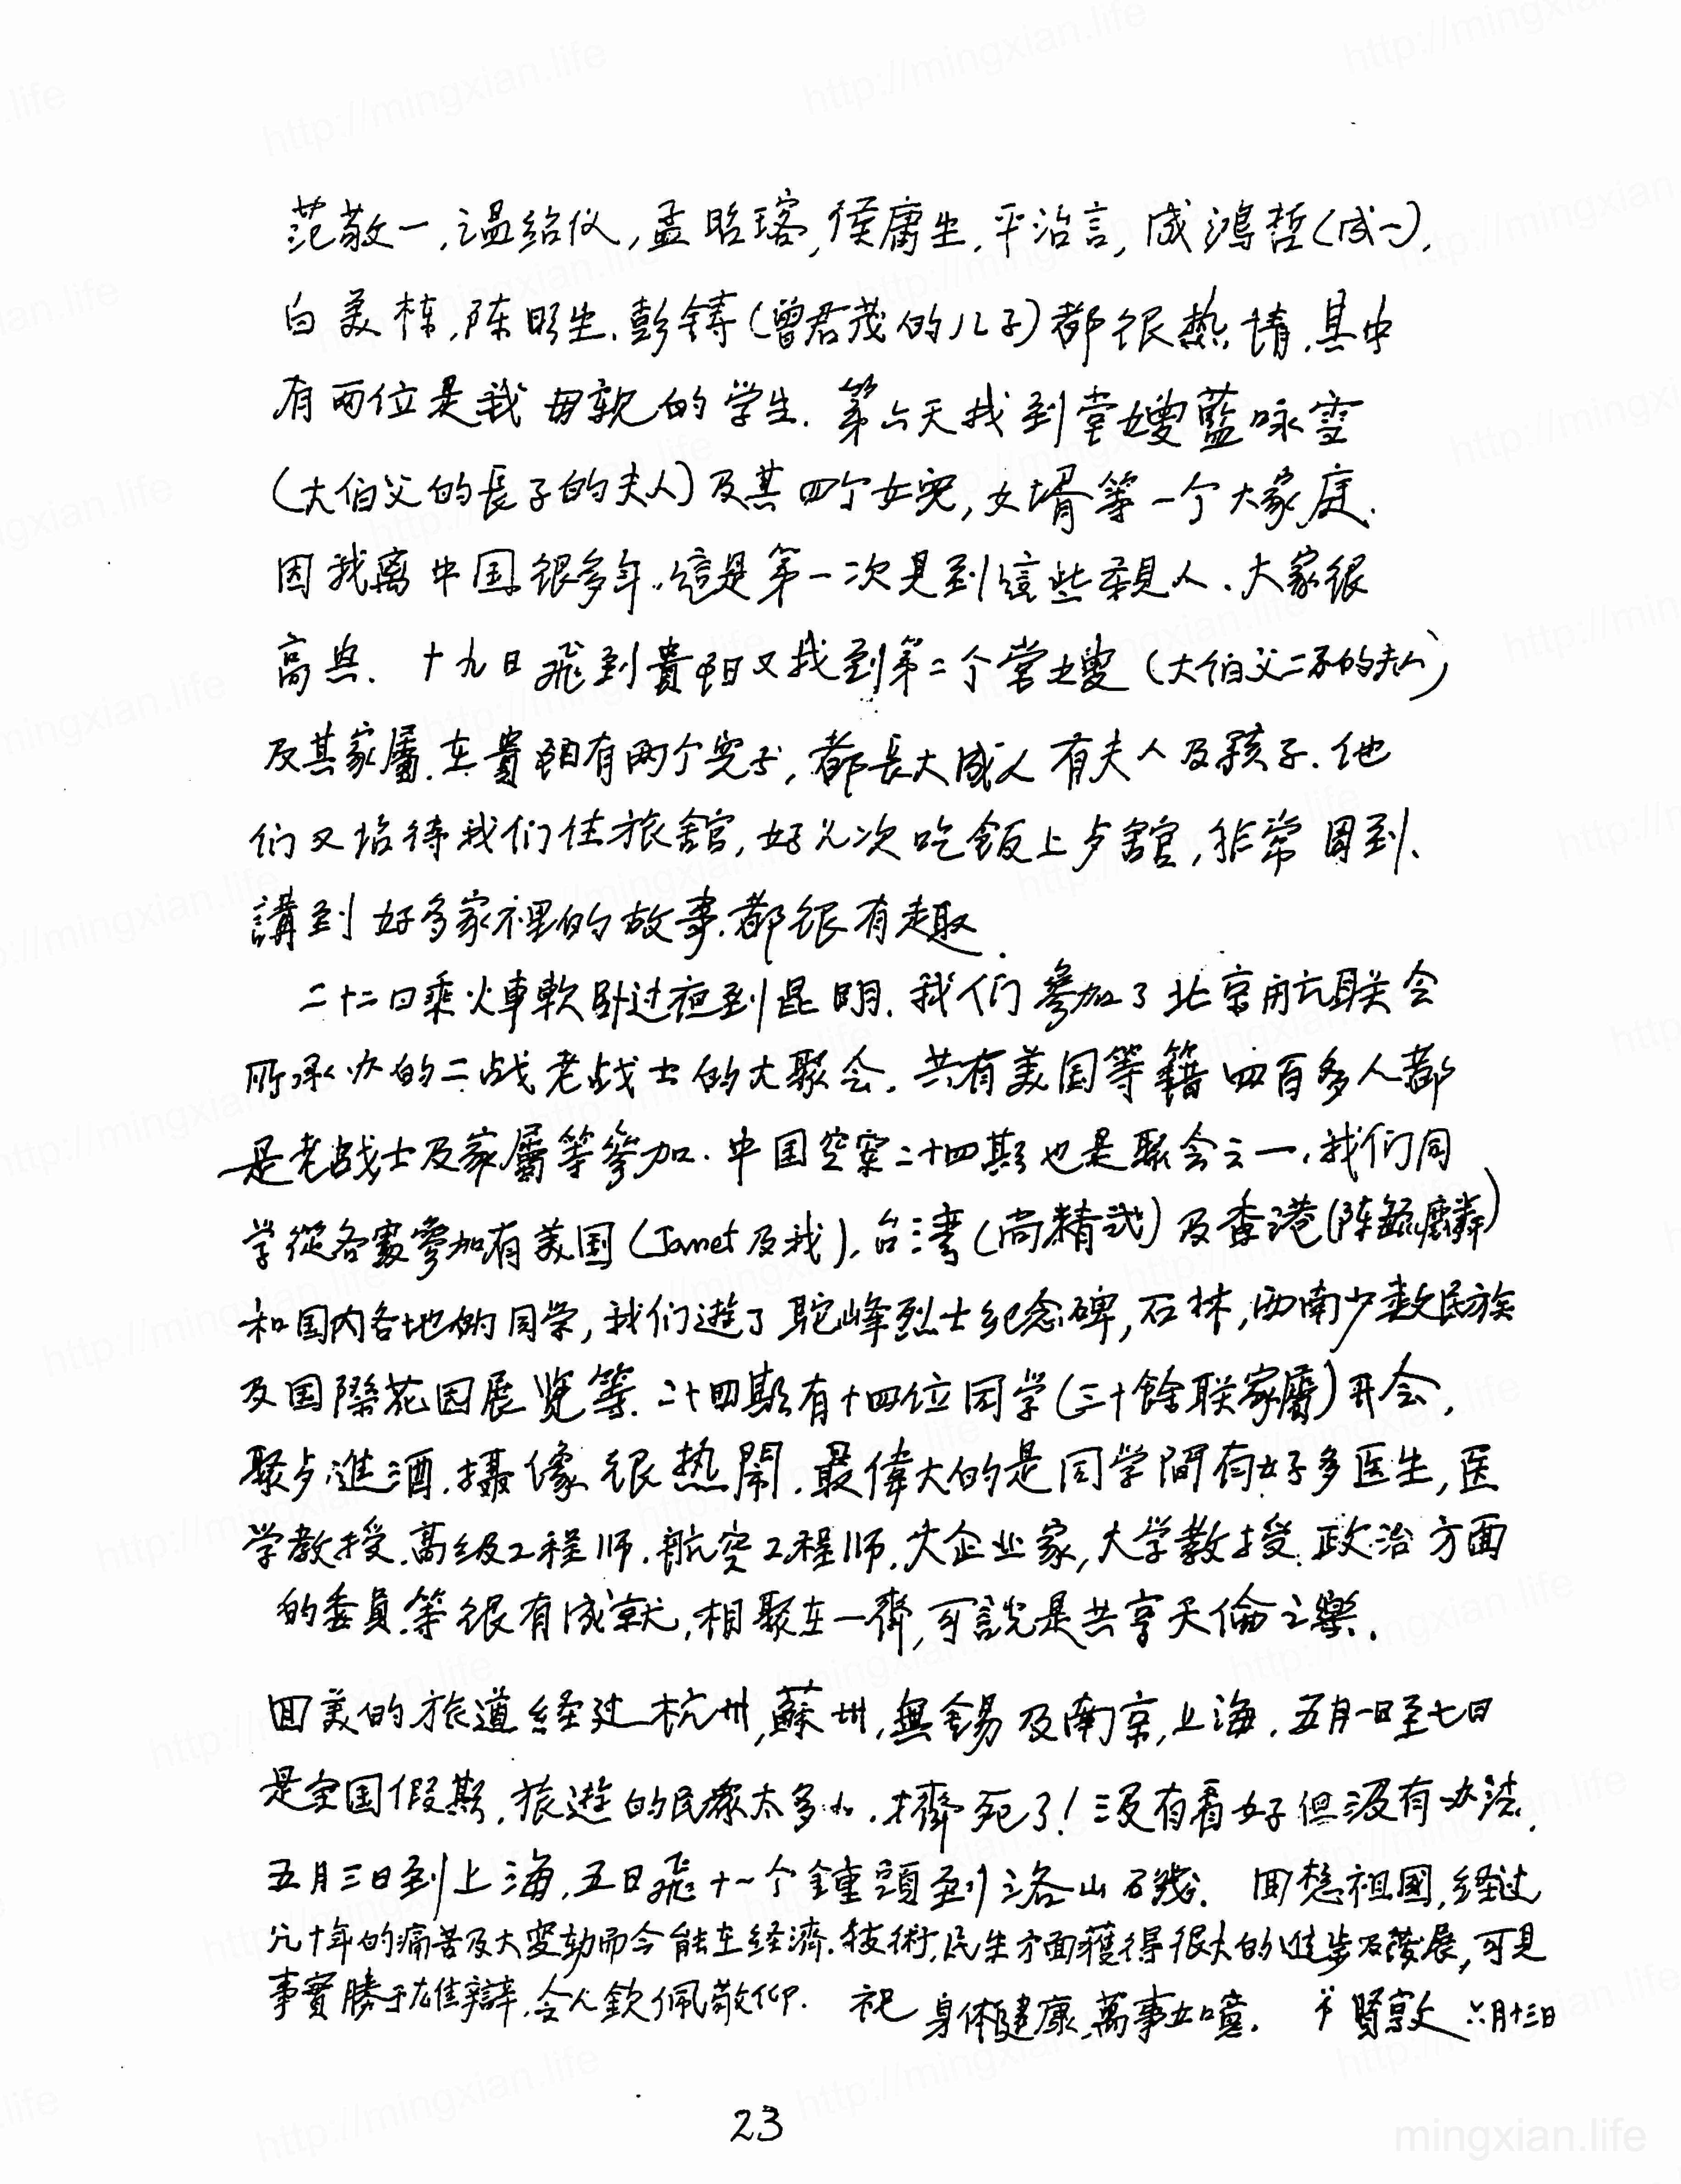 范敬一,温绍仪,孟昭瑢,侯庸生,平治言,成鸿哲(成一),
白美栋,陈昭生,彭铸(曾君茂的儿子)都很热情.其中
有两位是我母親的学生.第六天找到堂嫂藍咏雪
(大伯父的長子的夫人)及其四个女兒,女壻等一个大家庭.
因我离中国很多年,這是第一次見到這些親人.大家很
高兴. 十九日飛到貴阳又找到第二个堂嫂(大伯父二子的夫人)
及其家屬.在貴阳有两个兒子,都長大成人有夫人及孩子.他
们又招待我们住旅館,好几次吃飯上歺館,非常周到.
講到好多家裡的故事.都很有趣.
二十二日乘火車軟卧过夜到昆明.我们參加了北京航联会
所承办的二战老战士的大聚会.共有美国等籍四百多人都
是老战士及家屬等參加.中国空軍二十四期也是聚会之一.我们同
学從各處參加有美国(Janet及我),台湾(尚精武)及香港(陈毓麟)
和国内各地的同学,我们遊了駝峰烈士纪念碑,石林,西南少数民族
及国際花园展览等.二十四期有十四位同学(三十餘联家屬)开会,
聚歺進酒.摄像很热鬧.最偉大的是同学間有好多医生,医
学教授.高级工程师.航空工程师.大企业家,大学教授.政治方面
的委員等很有成就,相聚在一齊,可説是共享天倫之樂.
回美的旅道経过杭州,蘇州,無錫及南京,上海.五月一日至七日
是全国假期.旅遊的民衆太多.擠死了!没有看好但没有办法.
五月三日到上海,五日飛十一个鐘頭到洛山矶. 回想祖國,経过
几十年的痛苦及大变动而今能在经濟.技術.民生方面獲得很大的進步及發展,可見
事實勝于雄辯,令人欽佩敬仰. 祝 身体健康,萬事如意. 賢敦 六月十三日
23
http://mingxian.life
mingxian.life